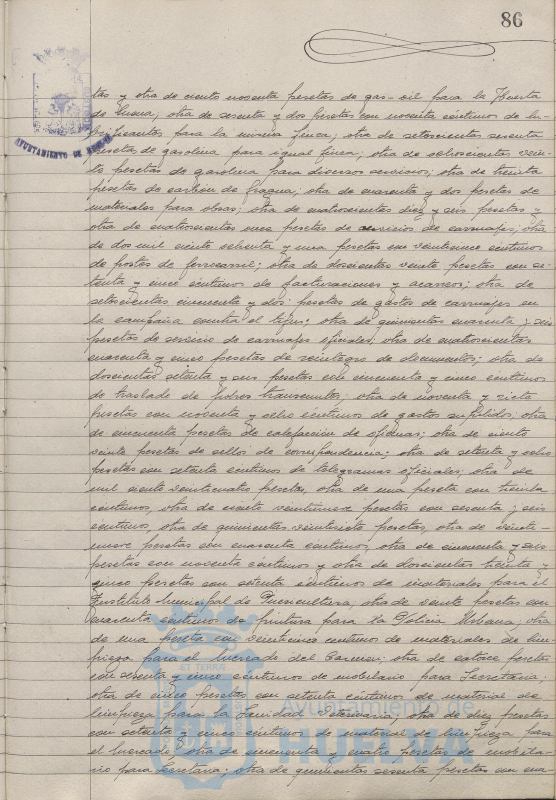 86
tas y otra de ciento noventa pesetas de gas-oil para la Huerta
de Mena, otra de sesenta y dos pesetas con noventa céntimos de lu-
brificantes para la misma finca, otra de setecientas sesenta
pesetas de gasolina para igual finca; otra de ochocientas vein-
te pesetas de gasolina para diversos servicios; otra de treinta
pesetas de carbón de fragua; otra de cuarenta y dos pesetas de
materiales para obras; otra de cuatrocientas diez y seis pesetas y
otra de cuatrocientas once pesetas de servicios de carruajes; otra
de dos mil ciento ochenta y una pesetas con veinticinco céntimos
de portes de ferrocarril; otra de doscientas veinte pesetas con se-
tenta y cinco céntimos de facturaciones y acarreos; otra de
setecientas cincuenta y dos pesetas de gastos de carruajes en
la campaña contra el tifus; otra de quinientas cuarenta y seis
pesetas de servicio de carruajes oficiales; otra de cuatrocientas
cuarenta y cinco pesetas de reintegro de documentos; otra de
doscientas setenta y seis pesetas con cincuenta y cinco céntimos
de traslado de pobres transeuntes; otra de noventa y siete
pesetas con noventa y ocho céntimos de gastos suplidos; otra
de cincuenta pesetas de calefacción de oficinas; otra de ciento
veinte pesetas de sellos de correspondencia; otra de setenta y ocho
pesetas con setenta céntimos de telegramas oficiales; otra de
mil ciento veinticuatro pesetas, otra de una peseta con treinta
céntimos, otra de ciento veintinueve pesetas con sesenta y seis
céntimos, otra de quinientas veintisiete pesetas, otra de veinti-
nueve pesetas con cuarenta céntimos, otra de cincuenta y seis
pesetas con noventa céntimos y otra de doscientas treinta y
cinco pesetas con setenta céntimos de materiales para el
Instituto Municipal de Puericultura, otra de veinte pesetas con
cuarenta céntimos de pintura para la Policía Urbana, otra
de una peseta con veinticinco céntimos de materiales de lim-
pieza para el mercado del Carmen; otra de catorce pesetas
con sesenta y cinco céntimos de mobiliario para Secretaría;
otra de cinco pesetas con setenta céntimos de material de
limpieza para la Unidad Veterinaria; otra de diez pesetas
con setenta y cinco céntimos de material de limpieza para
el Mercado; otra de cincuenta y cuatro pesetas de mobilia-
rio para Secretaría; otra de quinientas sesenta pesetas con cua-
AYUNTAMIENTO DE
ET TERRA
Ayuntamiento de
HUELVA